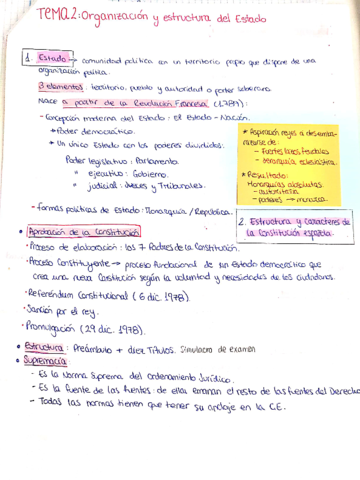 TEMA 2: Organización y estructura del Estado
1. Estado → comunidad política en un territorio propio que dispone de una
organización política.
3 elementos: territorio, pueblo y autoridad o poder soberano.
Nace a partir de la Revolución Francesa (1789):
- Concepción moderna del Estado: el Estado-Nación.
* Poder democrático.
* Un único Estado con los poderes divididos:
Poder legislativo: Parlamento.
" ejecutivo: Gobierno.
" judicial: Jueces y Tribunales.
- Formas políticas de Estado: Monarquía / República.
* Aspiración reyes a desembarazarse de:
- Fuertes lazos feudales
- Jerarquía eclesiástica.
* Resultado:
Monarquías absolutas:
- autoritaria
- poderes → monarca.
2. Estructura y Caracteres de
la Constitución española.
• Aprobación de la Constitución
- Proceso de elaboración: los 7 Padres de la Constitución.
- Proceso Constituyente → proceso fundacional de un estado democrático que
crea una nueva Constitución según la voluntad y necesidades de los ciudadanos.
- Referéndum Constitucional (6 dic. 1978).
- Sanción por el rey.
- Promulgación (29 dic. 1978).
• Estructura: Preámbulo + diez Títulos. Simulacro de examen
• Supremacía
- Es la Norma Suprema del Ordenamiento Jurídico.
- Es la fuente de las fuentes: de ella emanan el resto de las fuentes del Derecho
- Todas las normas tienen que tener su anclaje en la CE.